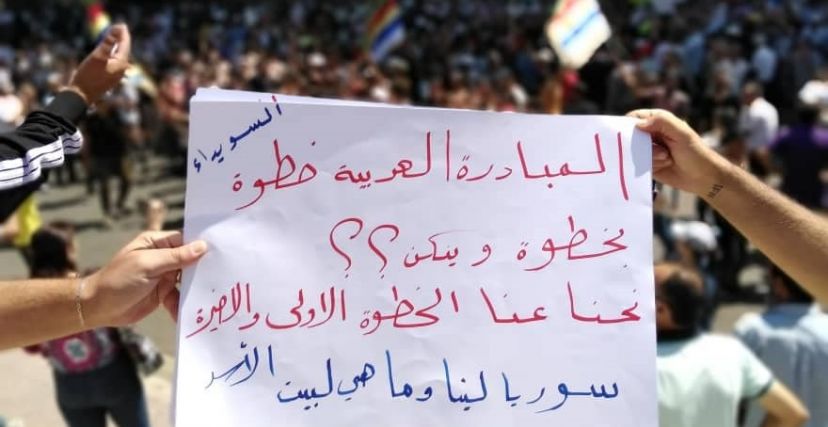 السويداء
المبادرة العربية خطوة
بخطوة وينكن؟؟
نحنا عنا الخطوة الاولى والاخيرة
سوريا لينا وما هي لبيت الأسد